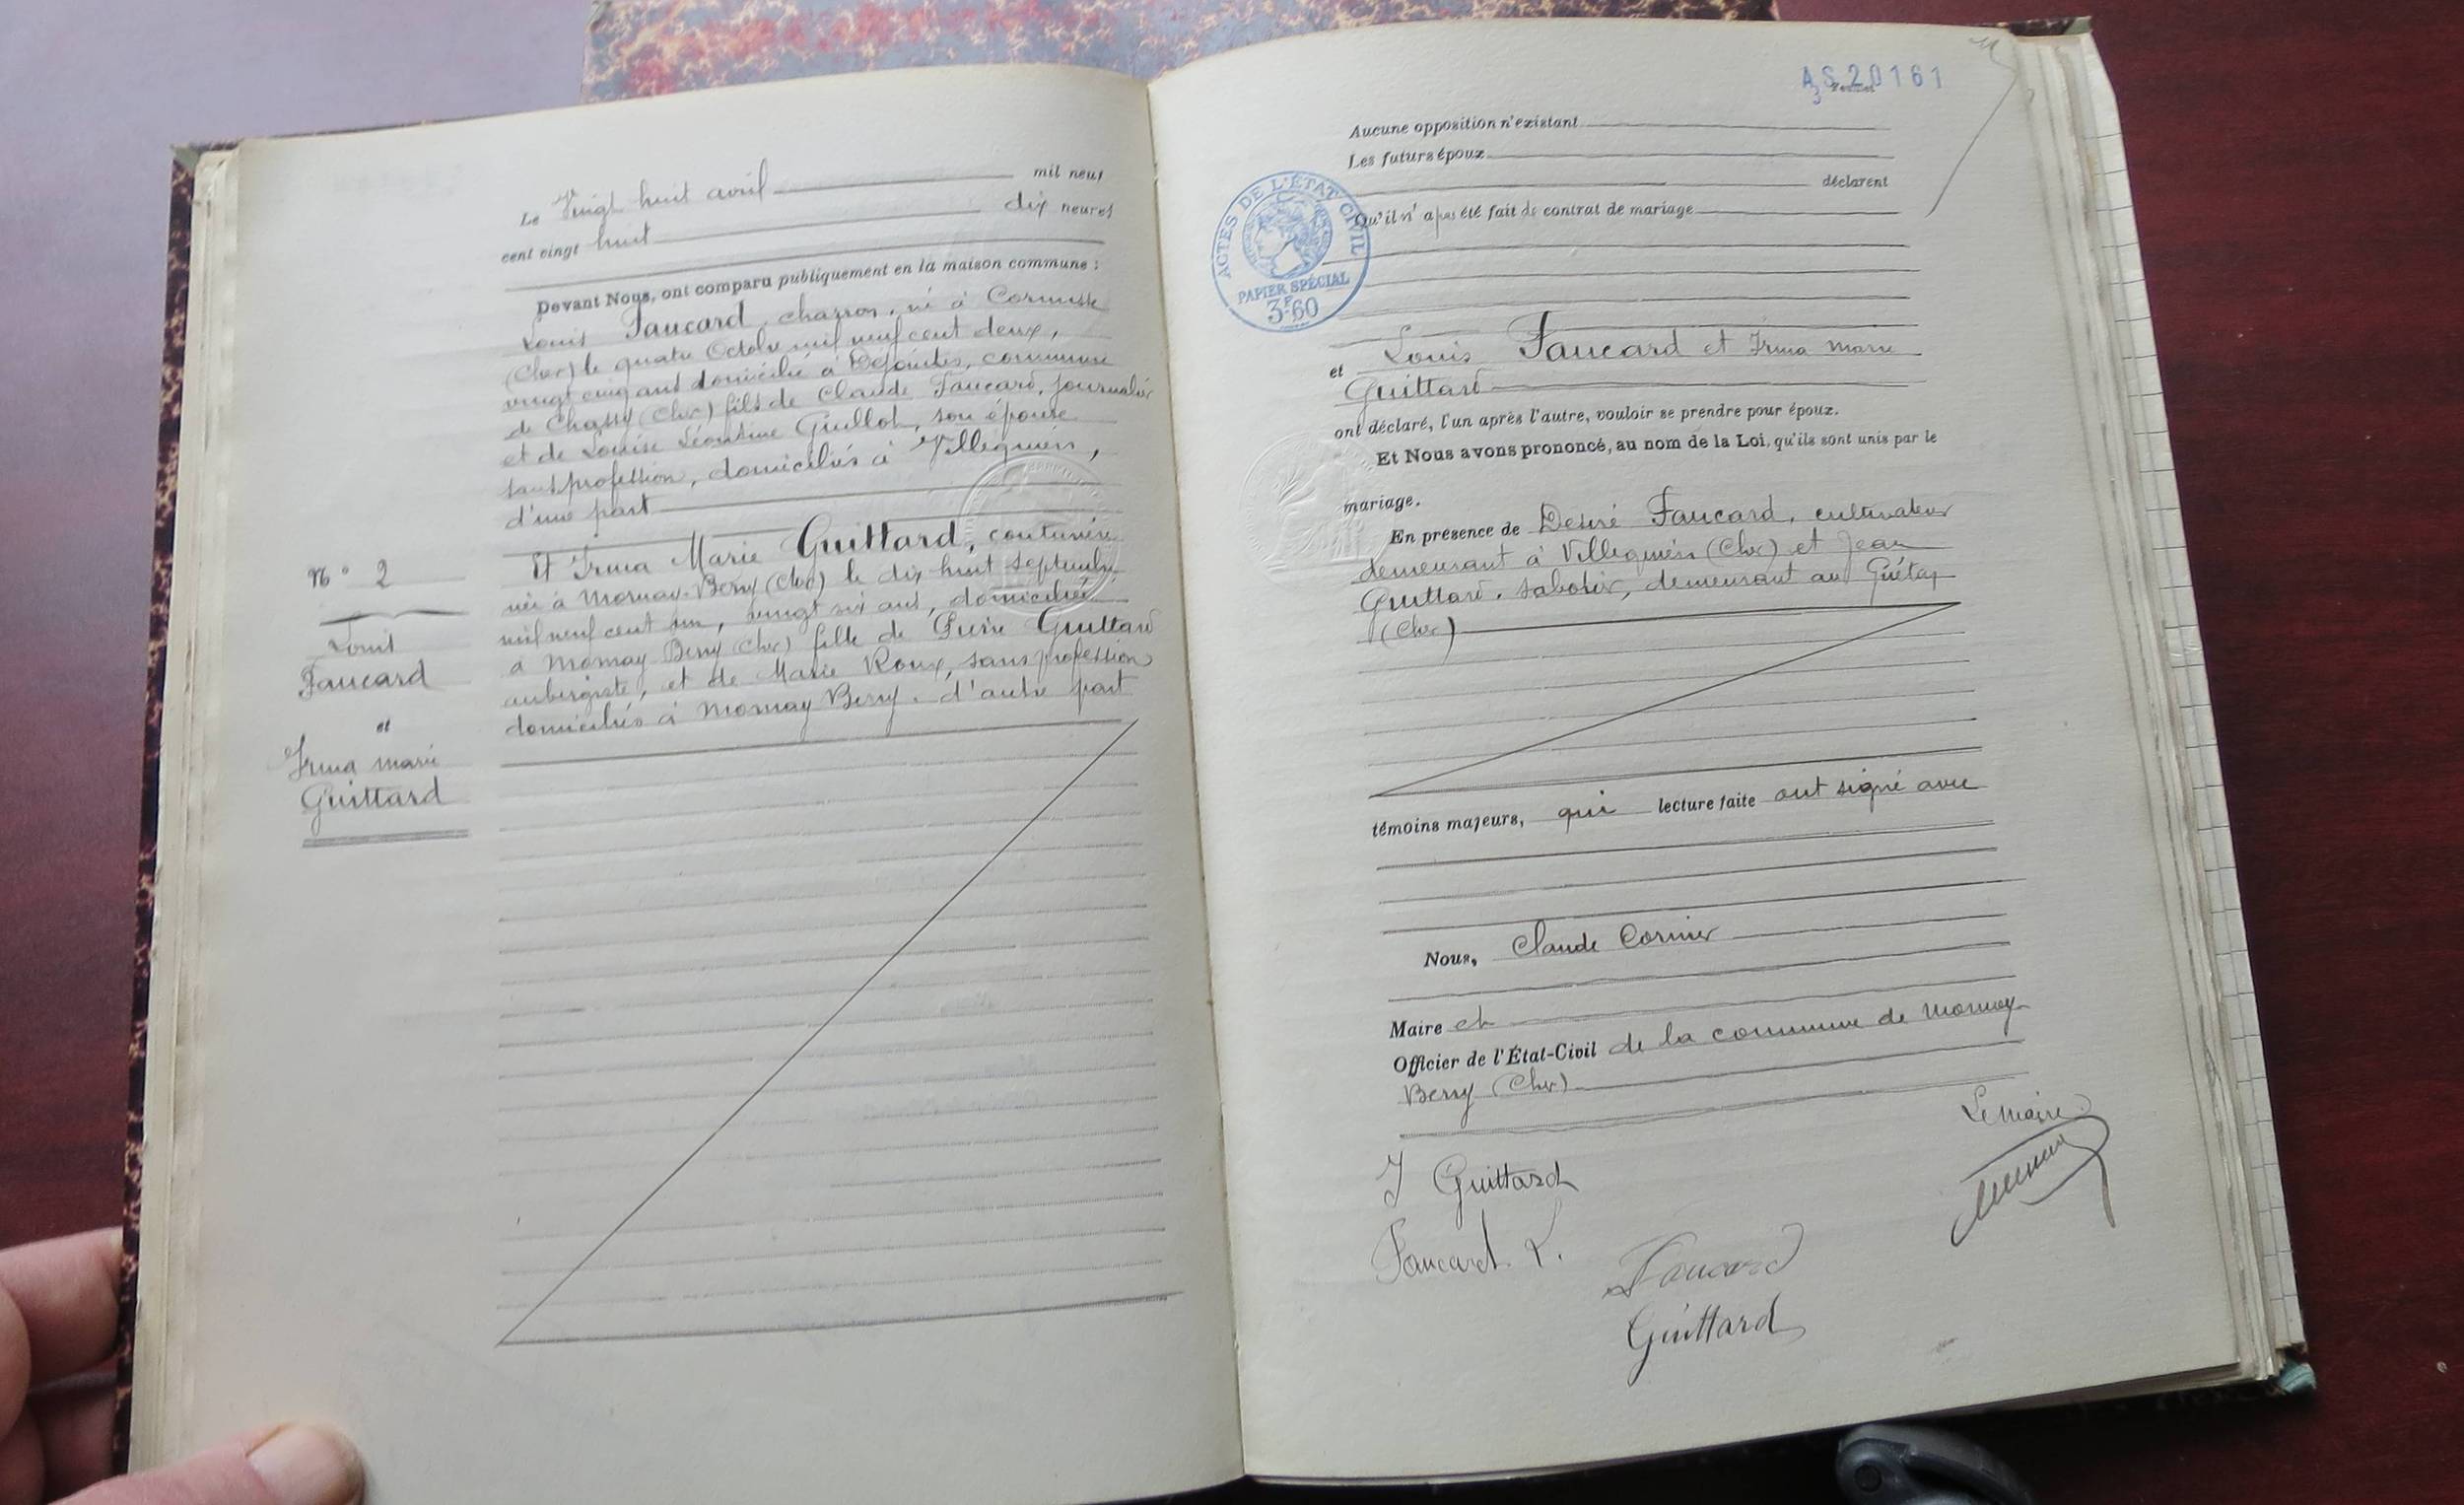 Le Vingt huit avril mil neuf
cent vingt huit dix heures
Devant Nous, ont comparu publiquement en la maison commune :
Louis Faucard, charron, né à Cornusse
(Cher) le quatre Octobre mil neuf cent deux,
vingt cinq ans domicilié à, commune
de Chassy (Cher) fils de Claude Faucard, journalier
et de Louise Léontine Guillot, son épouse
sans profession, domiciliés à Villequiers,
d'une part
N° 2
Louis
Faucard
et
Irma Marie
Guittard
Et Irma Marie Guittard, couturière
née à Mornay-Berry (Cher) le dix huit Septembre
mil neuf cent un, vingt six ans, domiciliée
à Mornay Berry (Cher) fille de Pierre Guittard
aubergiste, et de Marie Roux, sans profession
domiciliés à Mornay Berry. d'autre part
AS 20161
3
Aucune opposition n'existant
Les futurs époux
déclarent
Qu'il n'a pas été fait de contrat de mariage
ACTES DE L'ÉTAT CIVIL
PAPIER SPÉCIAL
3F60
et Louis Faucard et Irma Marie
Guittard
ont déclaré, l'un après l'autre, vouloir se prendre pour époux.
Et Nous avons prononcé, au nom de la Loi, qu'ils sont unis par le
mariage.
En présence de Désiré Faucard, cultivateur
demeurant à Villequiers (Cher) et Jean
Guittard, sabotier, demeurant au Guétin
(Cher)
témoins majeurs, qui lecture faite ont signé avec
Nous, Claude Cornier
Maire et
Officier de l'État-Civil de la commune de Mornay-
Berry (Cher)
Le Maire
I Guittard
Faucard L.
Faucard
Guittard